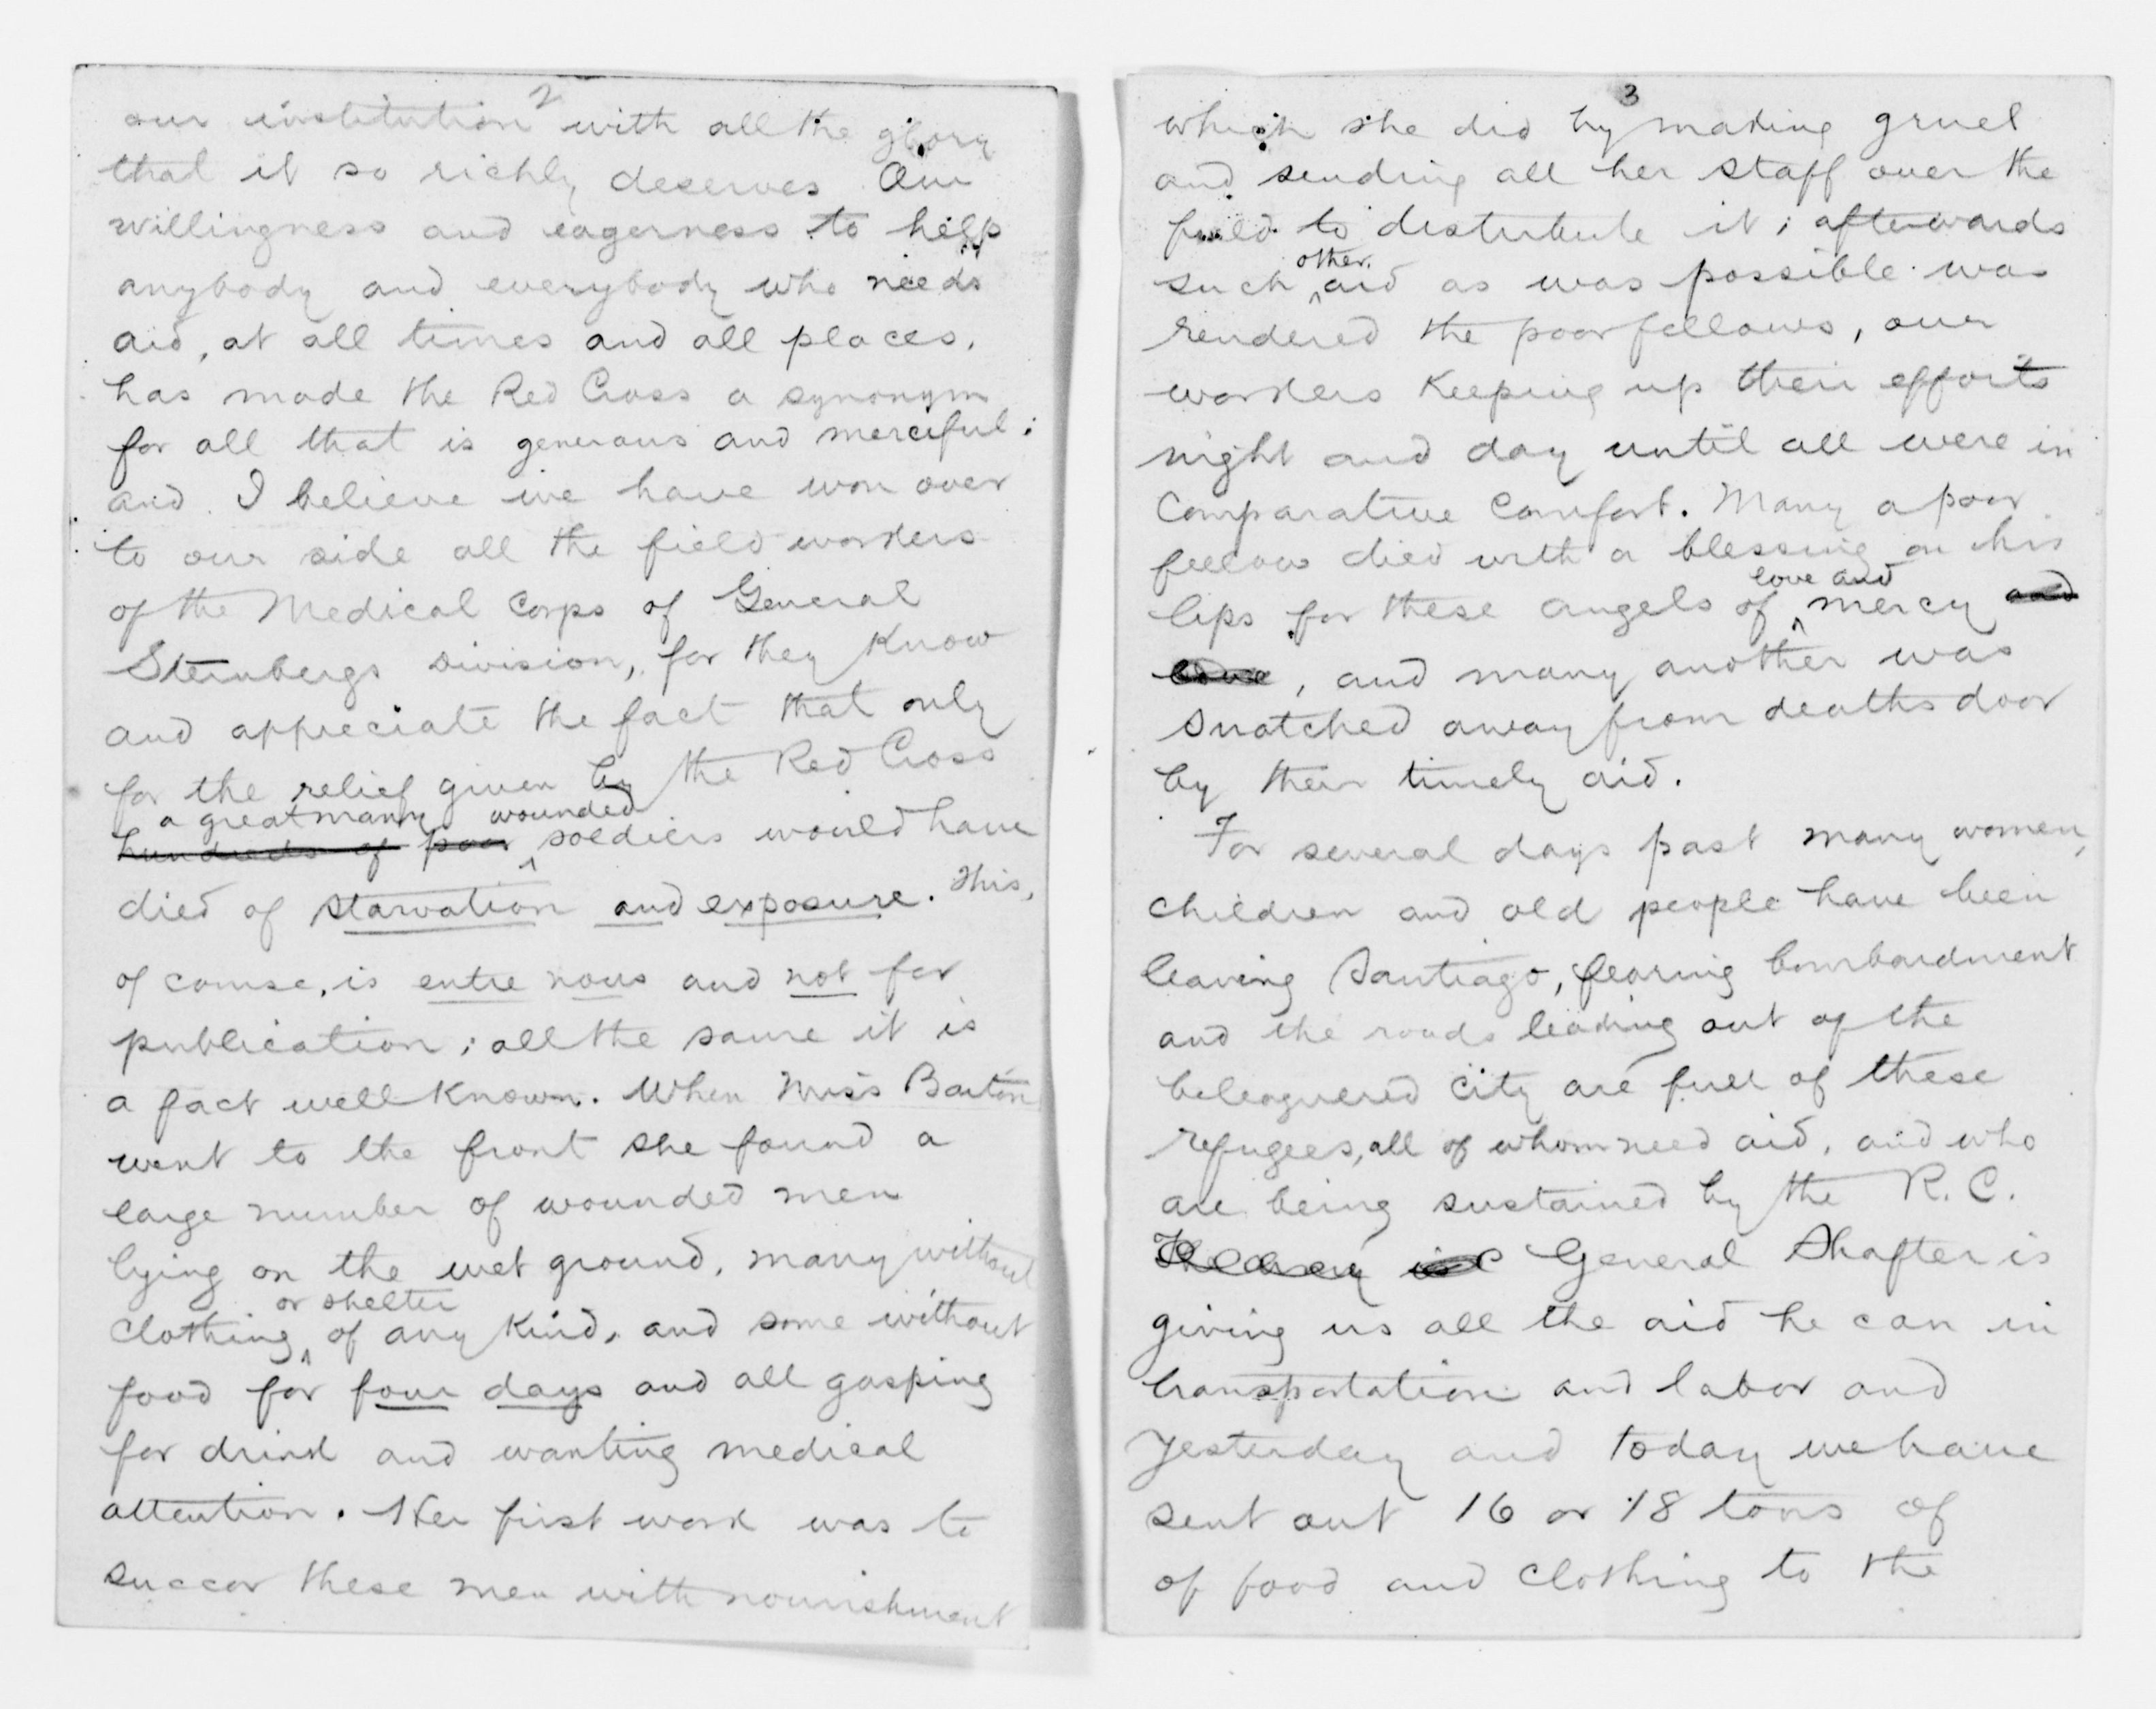 2
our institution with all the glory
that it so richly deserves. Our
willingness and eagerness to help
anybody and everybody who needs
aid, at all times and all places,
has made the Red Cross a synonym
for all that is generous and merciful;
and I believe we have won over
to our side all the field workers
of the Medical Corps of General
Sternbergs Division, for they know
and appreciate the fact that only
for the relief given by the Red Cross
a great many wounded
hundreds of poor soldiers would have
died of starvation and exposure. This,
of course, is entre nous and not for
publication; all the same it is
a fact well known. When Miss Barton
went to the front she found a
large number of wounded men
lying on the wet ground, many without
or shelter
clothing of any kind, and some without
food for four days and all gasping
for drink and wanting medical
attention. Her first work was to
succor these men with nourishment
3
which she did by making gruel
and sending all her staff over the
field to distribute it; afterwards
other
such aid as was possible was
rendered the poor fellows, our
workers keeping up their efforts
night and day until all were in
comparative comfort. Many a poor
fellow died with a blessing on his
love and
lips for these angels of mercy and
love, and many another was
snatched away from deaths door
by their timely aid.
For several days past many women,
children and old people have been
leaving Santiago, fearing bombardment
and the roads leading out of the
beleaguered city are full of these
refugees, all of whom need aid, and who
are being sustained by the R. C.
General Shafter is
giving us all the aid he can in
transportation and labor and
yesterday and today we have
sent out 16 or 18 tons of
of food and clothing to the